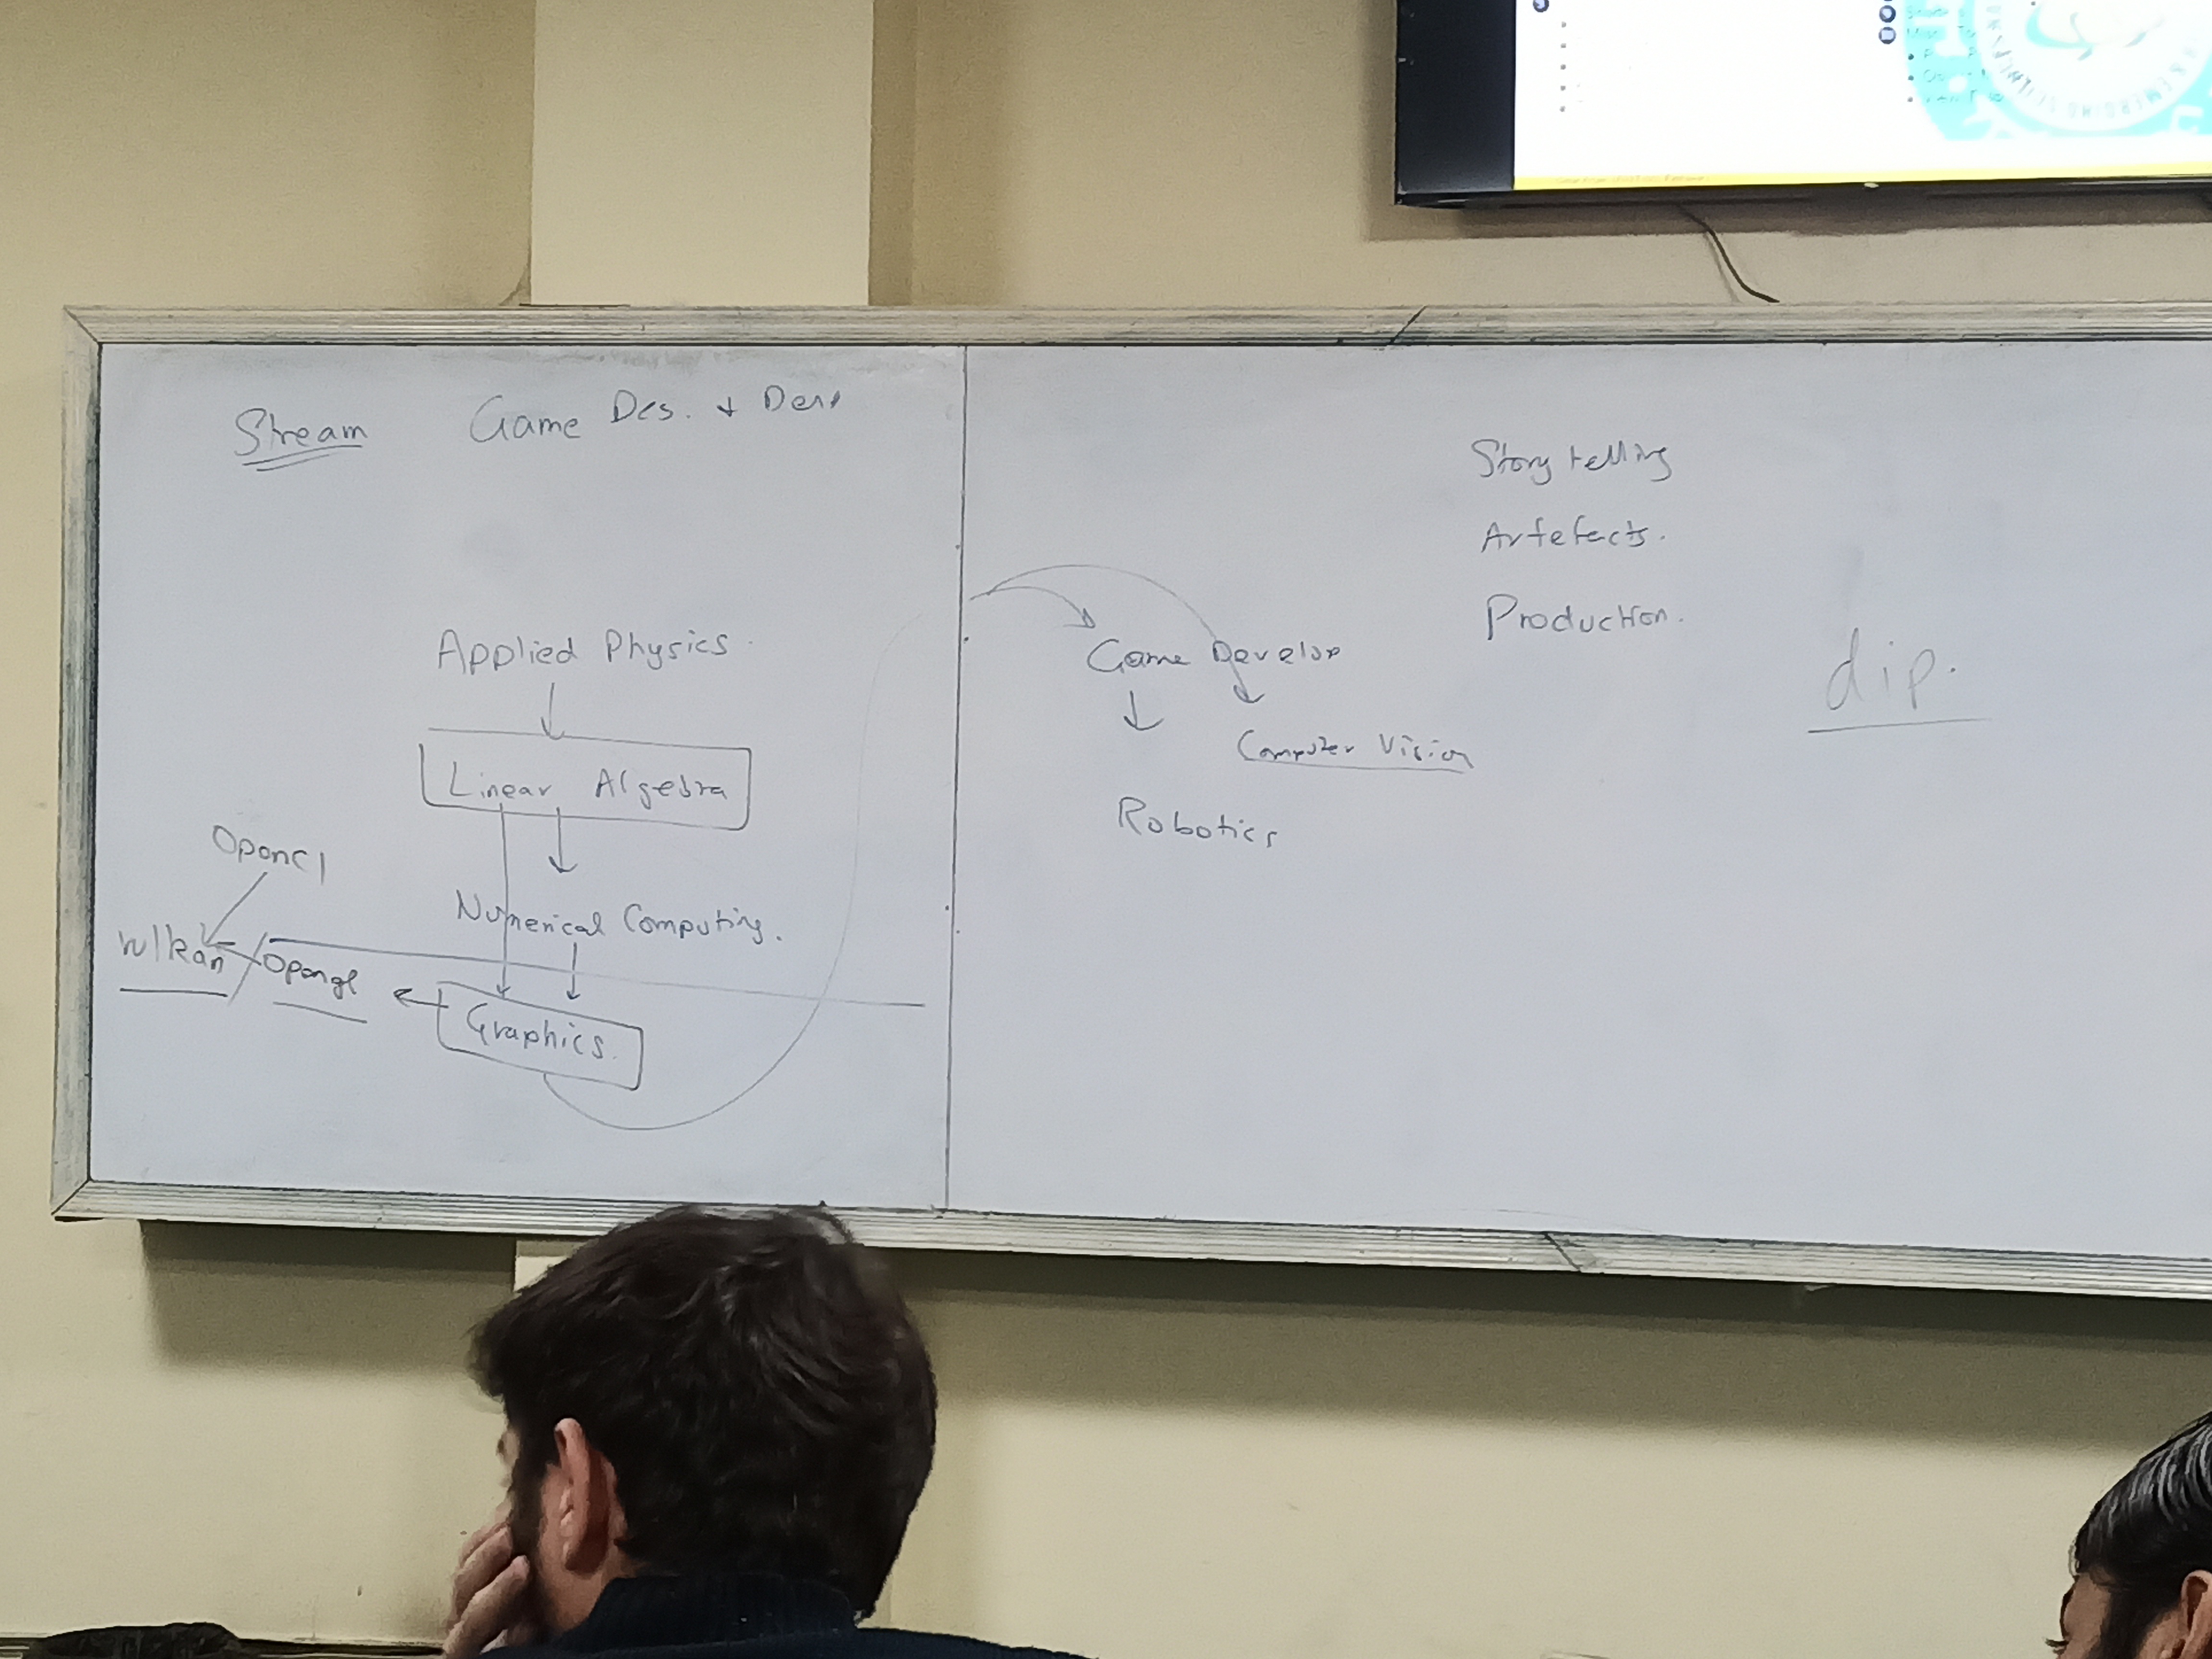 Stream Game Des. + Dev
Applied Physics.
Linear Algebra
Numerical Computing.
Opencl
Vulkan / Opengl
Graphics.
Game Develop
Computer Vision
Robotics
Story telling
Artefacts.
Production.
dip.